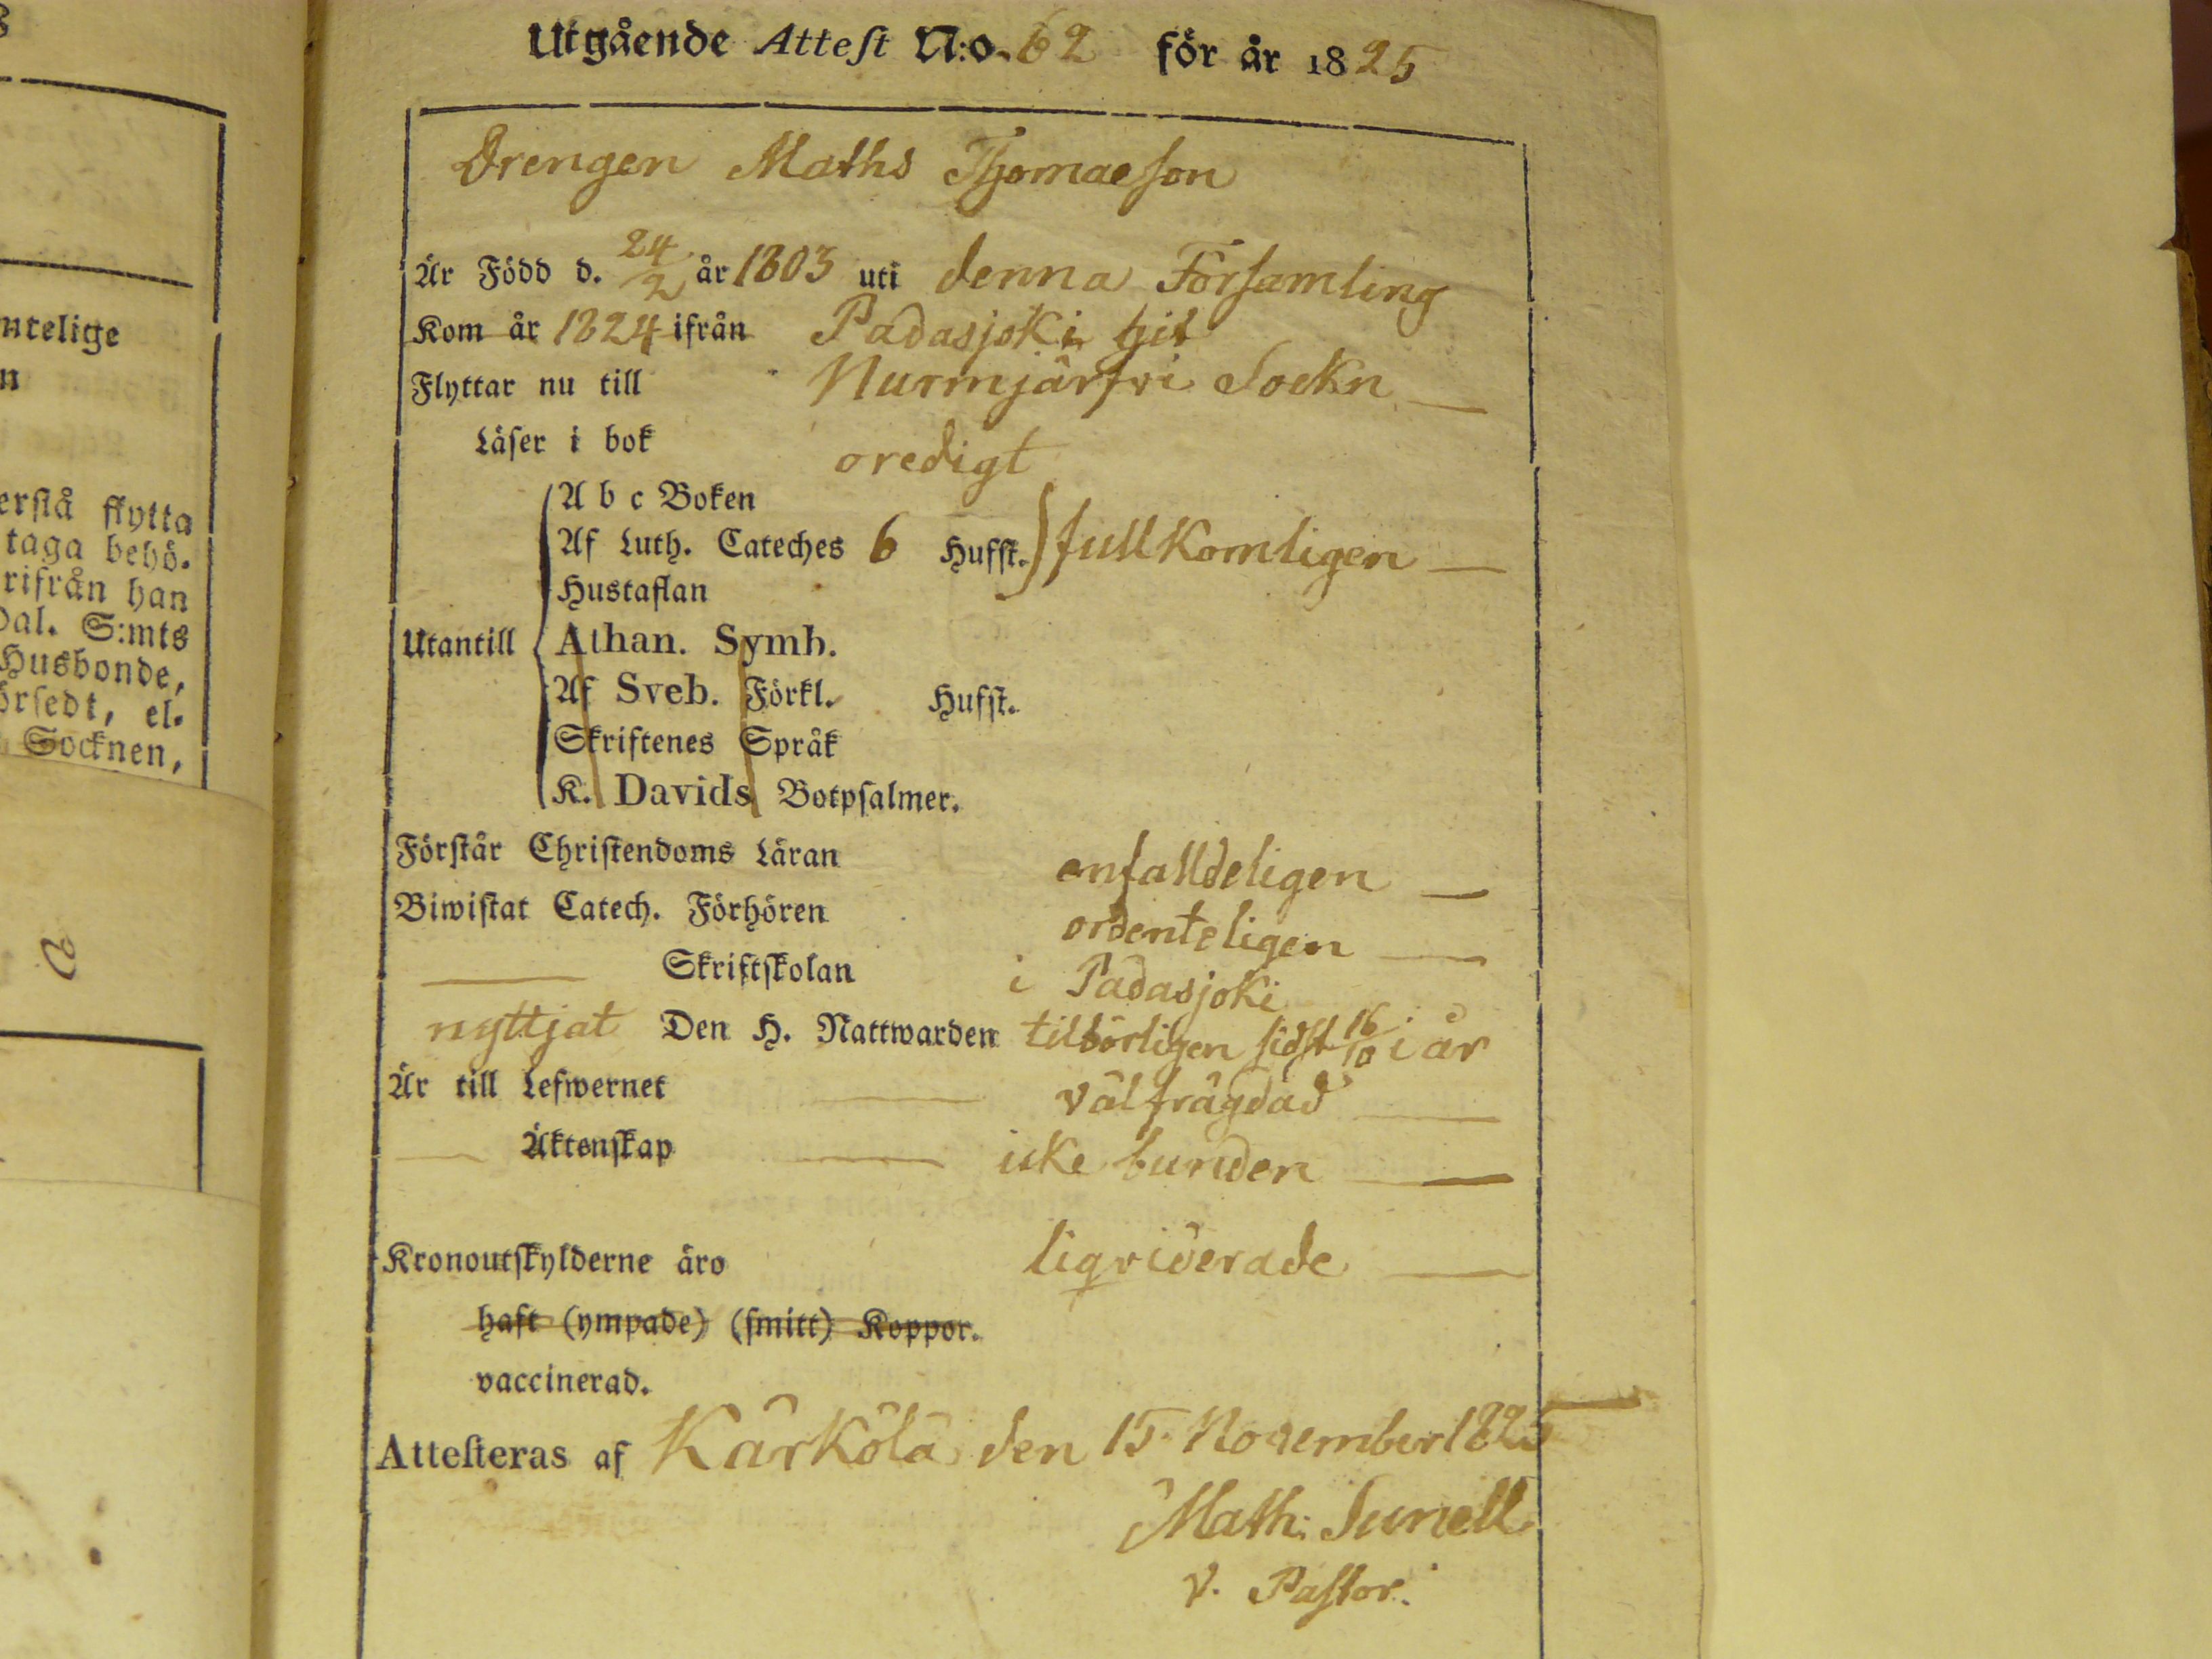 Utgående Attest N:o. 62 för år 1825
Drengen Maths Thomaeson
Är Född d. 24/2 år 1803 uti denna Församling
Kom år 1824 ifrån Padasjoki hit
Flyttar nu till Nurmjärfvi Sockn
Läser i bok oredigt
A b c Boken
Af Luth. Cateches 6 Hufst. fullkomligen
Hustaflan
Utantill Athan. Symb.
Af Sveb. Förkl. Hufst.
Skriftenes Språk
K. Davids Botpsalmer.
Förstår Christendoms Läran enfalldeligen
Biwistat Catech. Förhören ordenteligen
Skriftskolan i Padasjoki
nyttjat Den H. Nattwarden tilbörligen sidst 16/10 i år
Är till Lefwernet välfrägdad
Äktenskap icke bunden
Kronoutskylderne äro liqviderade
haft (ympade) (smitt) Koppor.
vaccinerad.
Attesteras af Kärkölä den 15 November 1825
Math: Sunell
V. Pastor.
ntelige
n
erstå flytta
taga behö-
rifrån han
Dal. S:mts
Husbonde,
örsedt, el-
Socknen,